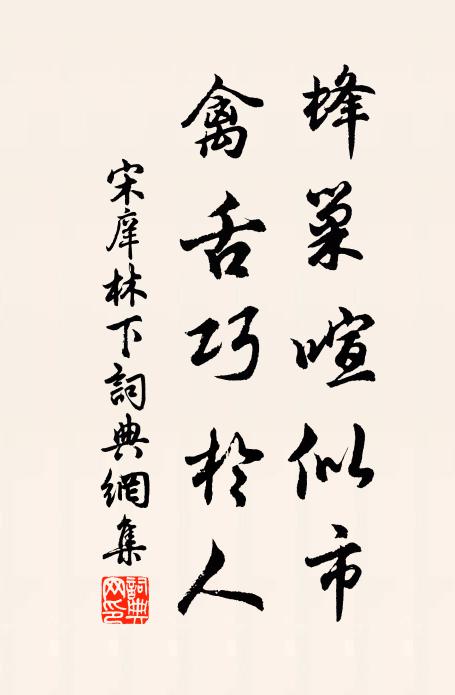 蜂巢喧似市
禽舌巧於人
宋庠林下詞典網集
詞典網印